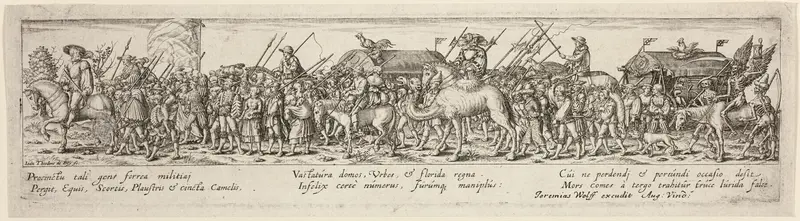 Ioan Theodor de Bry fe.
Procinctu tali gens ferrea militiai
Pergit, Equis, Scortis, Plaustris & cincta Camelis.
Vastatura domos, Urbes, & florida regna
Infelix certè numerus, furumq; maniplus:
Cui ne perdendi & pereundi occasio desit
Mors comes á tergo trahitur truce lurida falce
Jeremias Wolff excudit Aug. Vind.